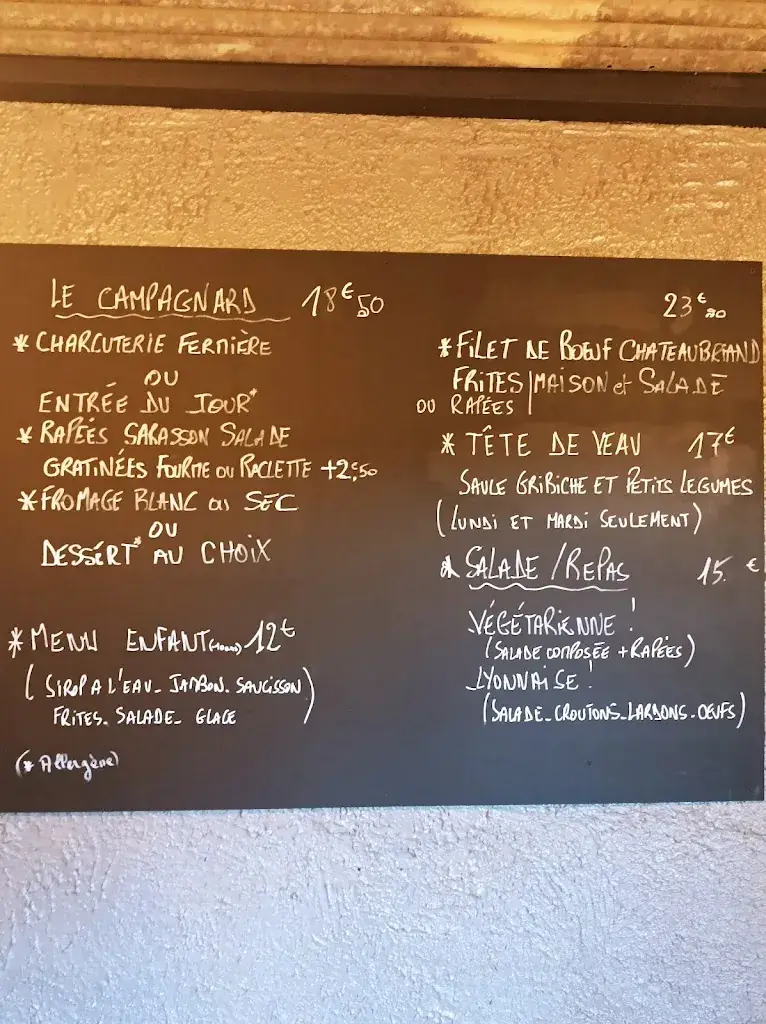 LE CAMPAGNARD 18€50
* CHARCUTERIE FERMIÈRE
OU
ENTRÉE DU JOUR*
* RAPÉES SARASSON SALADE
GRATINÉES FOURME OU RACLETTE +2€50
* FROMAGE BLANC OU SEC
OU
DESSERT* AU CHOIX
* MENU ENFANT 12€
(SIROP A L'EAU_ JAMBON_ SAUCISSON
FRITES_ SALADE_ GLACE)
(* Allergène)
23€
* FILET DE BOEUF CHATEAUBRIAND
FRITES | MAISON et SALADE
OU RAPÉES
* TÊTE DE VEAU 17€
SAUCE GRIBICHE ET PETITS LEGUMES
(LUNDI ET MARDI SEULEMENT)
* SALADE / REPAS 15 €
_VÉGÉTARIENNE !
(SALADE COMPOSÉE + RAPÉES)
_LYONNAISE !
(SALADE_ CROUTONS_ LARDONS_ OEUFS)